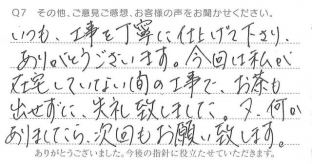 Q7 その他、ご意見ご感想、お客様の声をお聞かせください。
いつも、工事を丁寧に仕上げて下さり、
ありがとうございます。今回は私が
在宅していない間の工事で、お茶も
出せずに、失礼致しました。又、何か
ありましたら、次回もお願い致します。
ありがとうございました。今後の指針に役立たせていただきます。